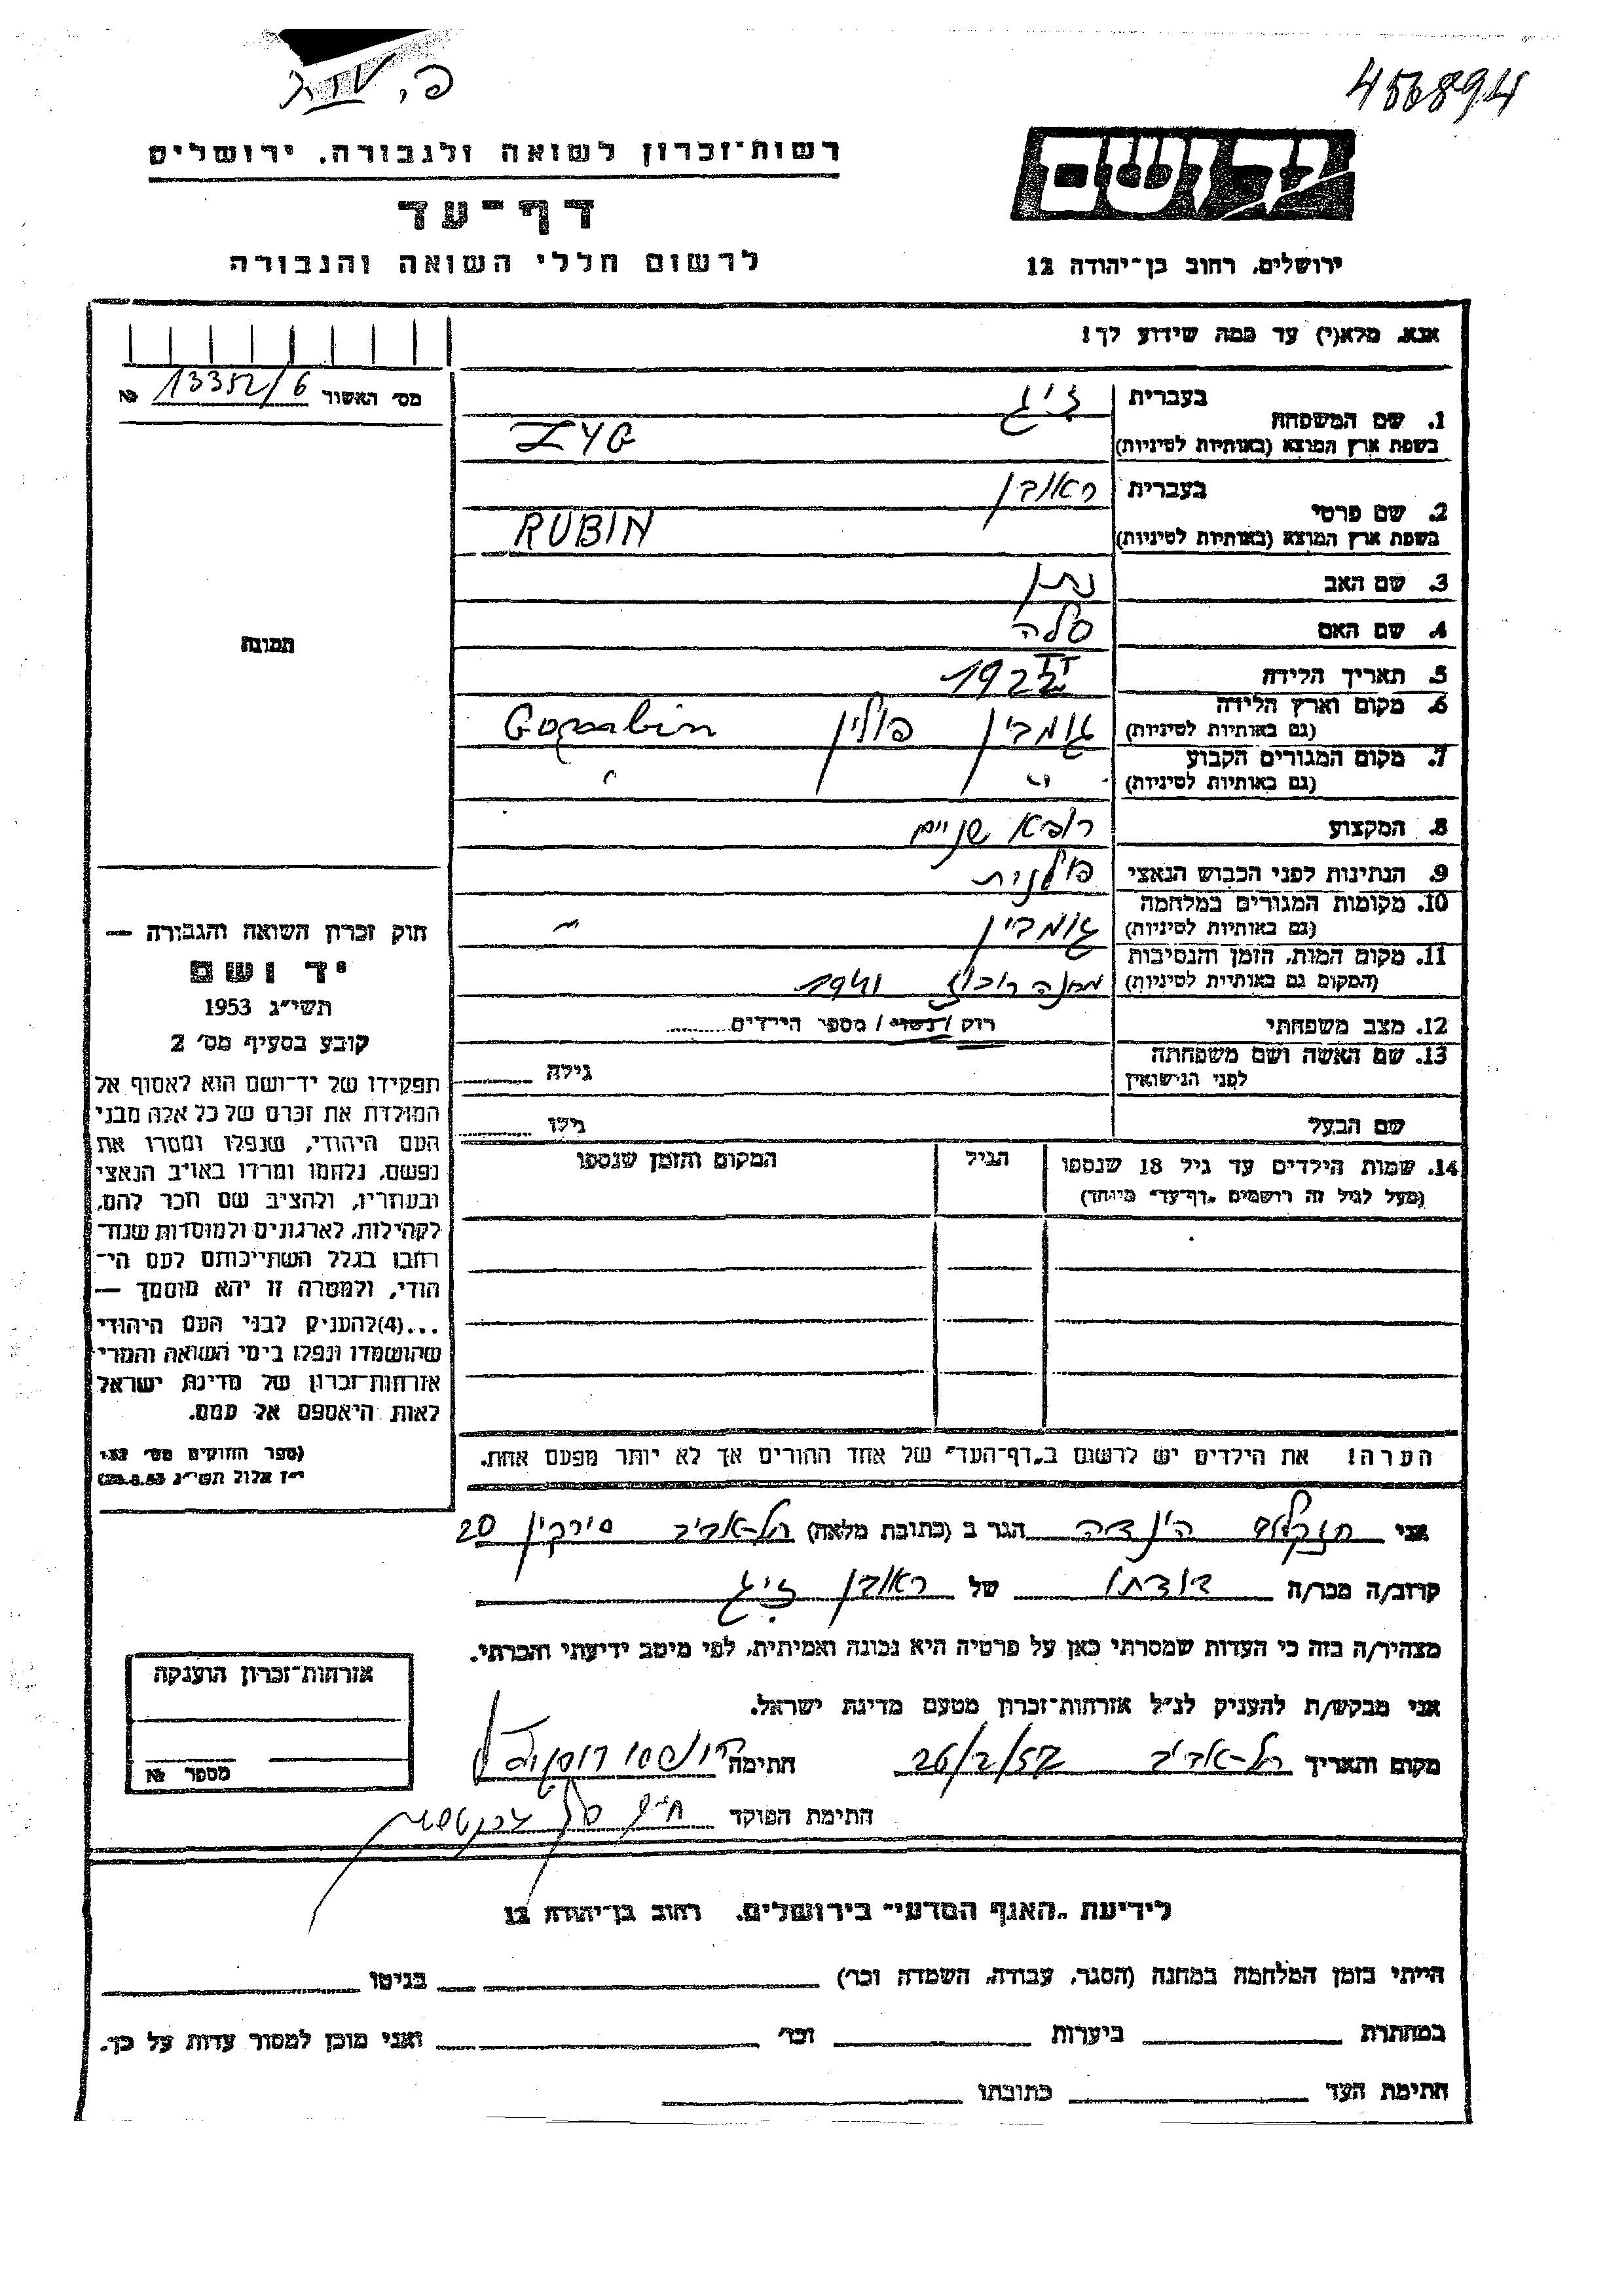 456894
רשות־זכרון לשואה ולגבורה, ירושלים
יד ושם
דף־עד
ירושלים, רחוב בן־יהודה 12
לרשום חללי השואה והגבורה
אנא, מלא(י) עד כמה שידוע לך!
מס׳ האשור 13352/6 №
1. שם המשפחה בעברית זיג
בשפת ארץ המוצא (באותיות לטיניות) ZYG
2. שם פרטי בעברית ראובן
בשפת ארץ המוצא (באותיות לטיניות) RUBIN
3. שם האב נתן
4. שם האם סלה
תמונה
5. תאריך הלידה 1922
6. מקום וארץ הלידה
(גם באותיות לטיניות) גומבין פולין Gombin
7. מקום המגורים הקבוע
(גם באותיות לטיניות) " "
8. המקצוע רופא שניים
9. הנתינות לפני הכבוש הנאצי פולנית
10. מקומות המגורים במלחמה
(גם באותיות לטיניות) גומבין "
11. מקום המות, הזמן והנסיבות
(המקום גם באותיות לטיניות) מחנה 1941
12. מצב משפחתי רוק / נשוי / מספר הילדים
13. שם האשה ושם משפחתה
לפני הנישואין גילה
שם הבעל גילו
14. שמות הילדים עד גיל 18 שנספו הגיל המקום והזמן שנספו
(מעל לגיל זה רושמים „דף־עד" מיוחד)
הערה! את הילדים יש לרשום ב„דף־העד" של אחד ההורים אך לא יותר מפעם אחת.
חוק זכרון השואה והגבורה —
יד ושם
תשי״ג 1953
קובע בסעיף מס׳ 2
תפקידו של יד־ושם הוא לאסוף אל
המולדת את זכרם של כל אלה מבני
העם היהודי, שנפלו ומסרו את
נפשם, נלחמו ומרדו באויב הנאצי
ובעוזריו, ולהציב שם וזכר להם,
לקהילות, לארגונים ולמוסדות שנח־
רבו בגלל השתייכותם לעם הי־
הודי, ולמטרה זו יהא מוסמך —
...(4) להעניק לבני העם היהודי
שהושמדו ונפלו בימי השואה והמרי
אזרחות־זכרון של מדינת ישראל
לאות היאספם אל עמם.
(ספר החוקים מס׳ 132
י״ז אלול תשי״ג 28.8.53)
אני הינדה הגר ב (כתובת מלאה) תל-אביב סירקין 20
קרוב/ה מכר/ה דודתו של ראובן זיג
מצהיר/ה בזה כי העדות שמסרתי כאן על פרטיה היא נכונה ואמיתית, לפי מיטב ידיעתי והכרתי.
אני מבקש/ת להעניק לנ״ל אזרחות־זכרון מטעם מדינת ישראל.
מקום ותאריך תל-אביב 26/2/57 חתימה
חתימת הפוקד
אזרחות־זכרון הוענקה
מספר №
לידיעת „האגף המדעי" בירושלים, רחוב בן־יהודה 12
הייתי בזמן המלחמה במחנה (הסגר, עבודה, השמדה וכו׳) בגיטו
במחתרת ביערות וכו׳ ואני מוכן למסור עדות על כך.
חתימת העד כתובתו